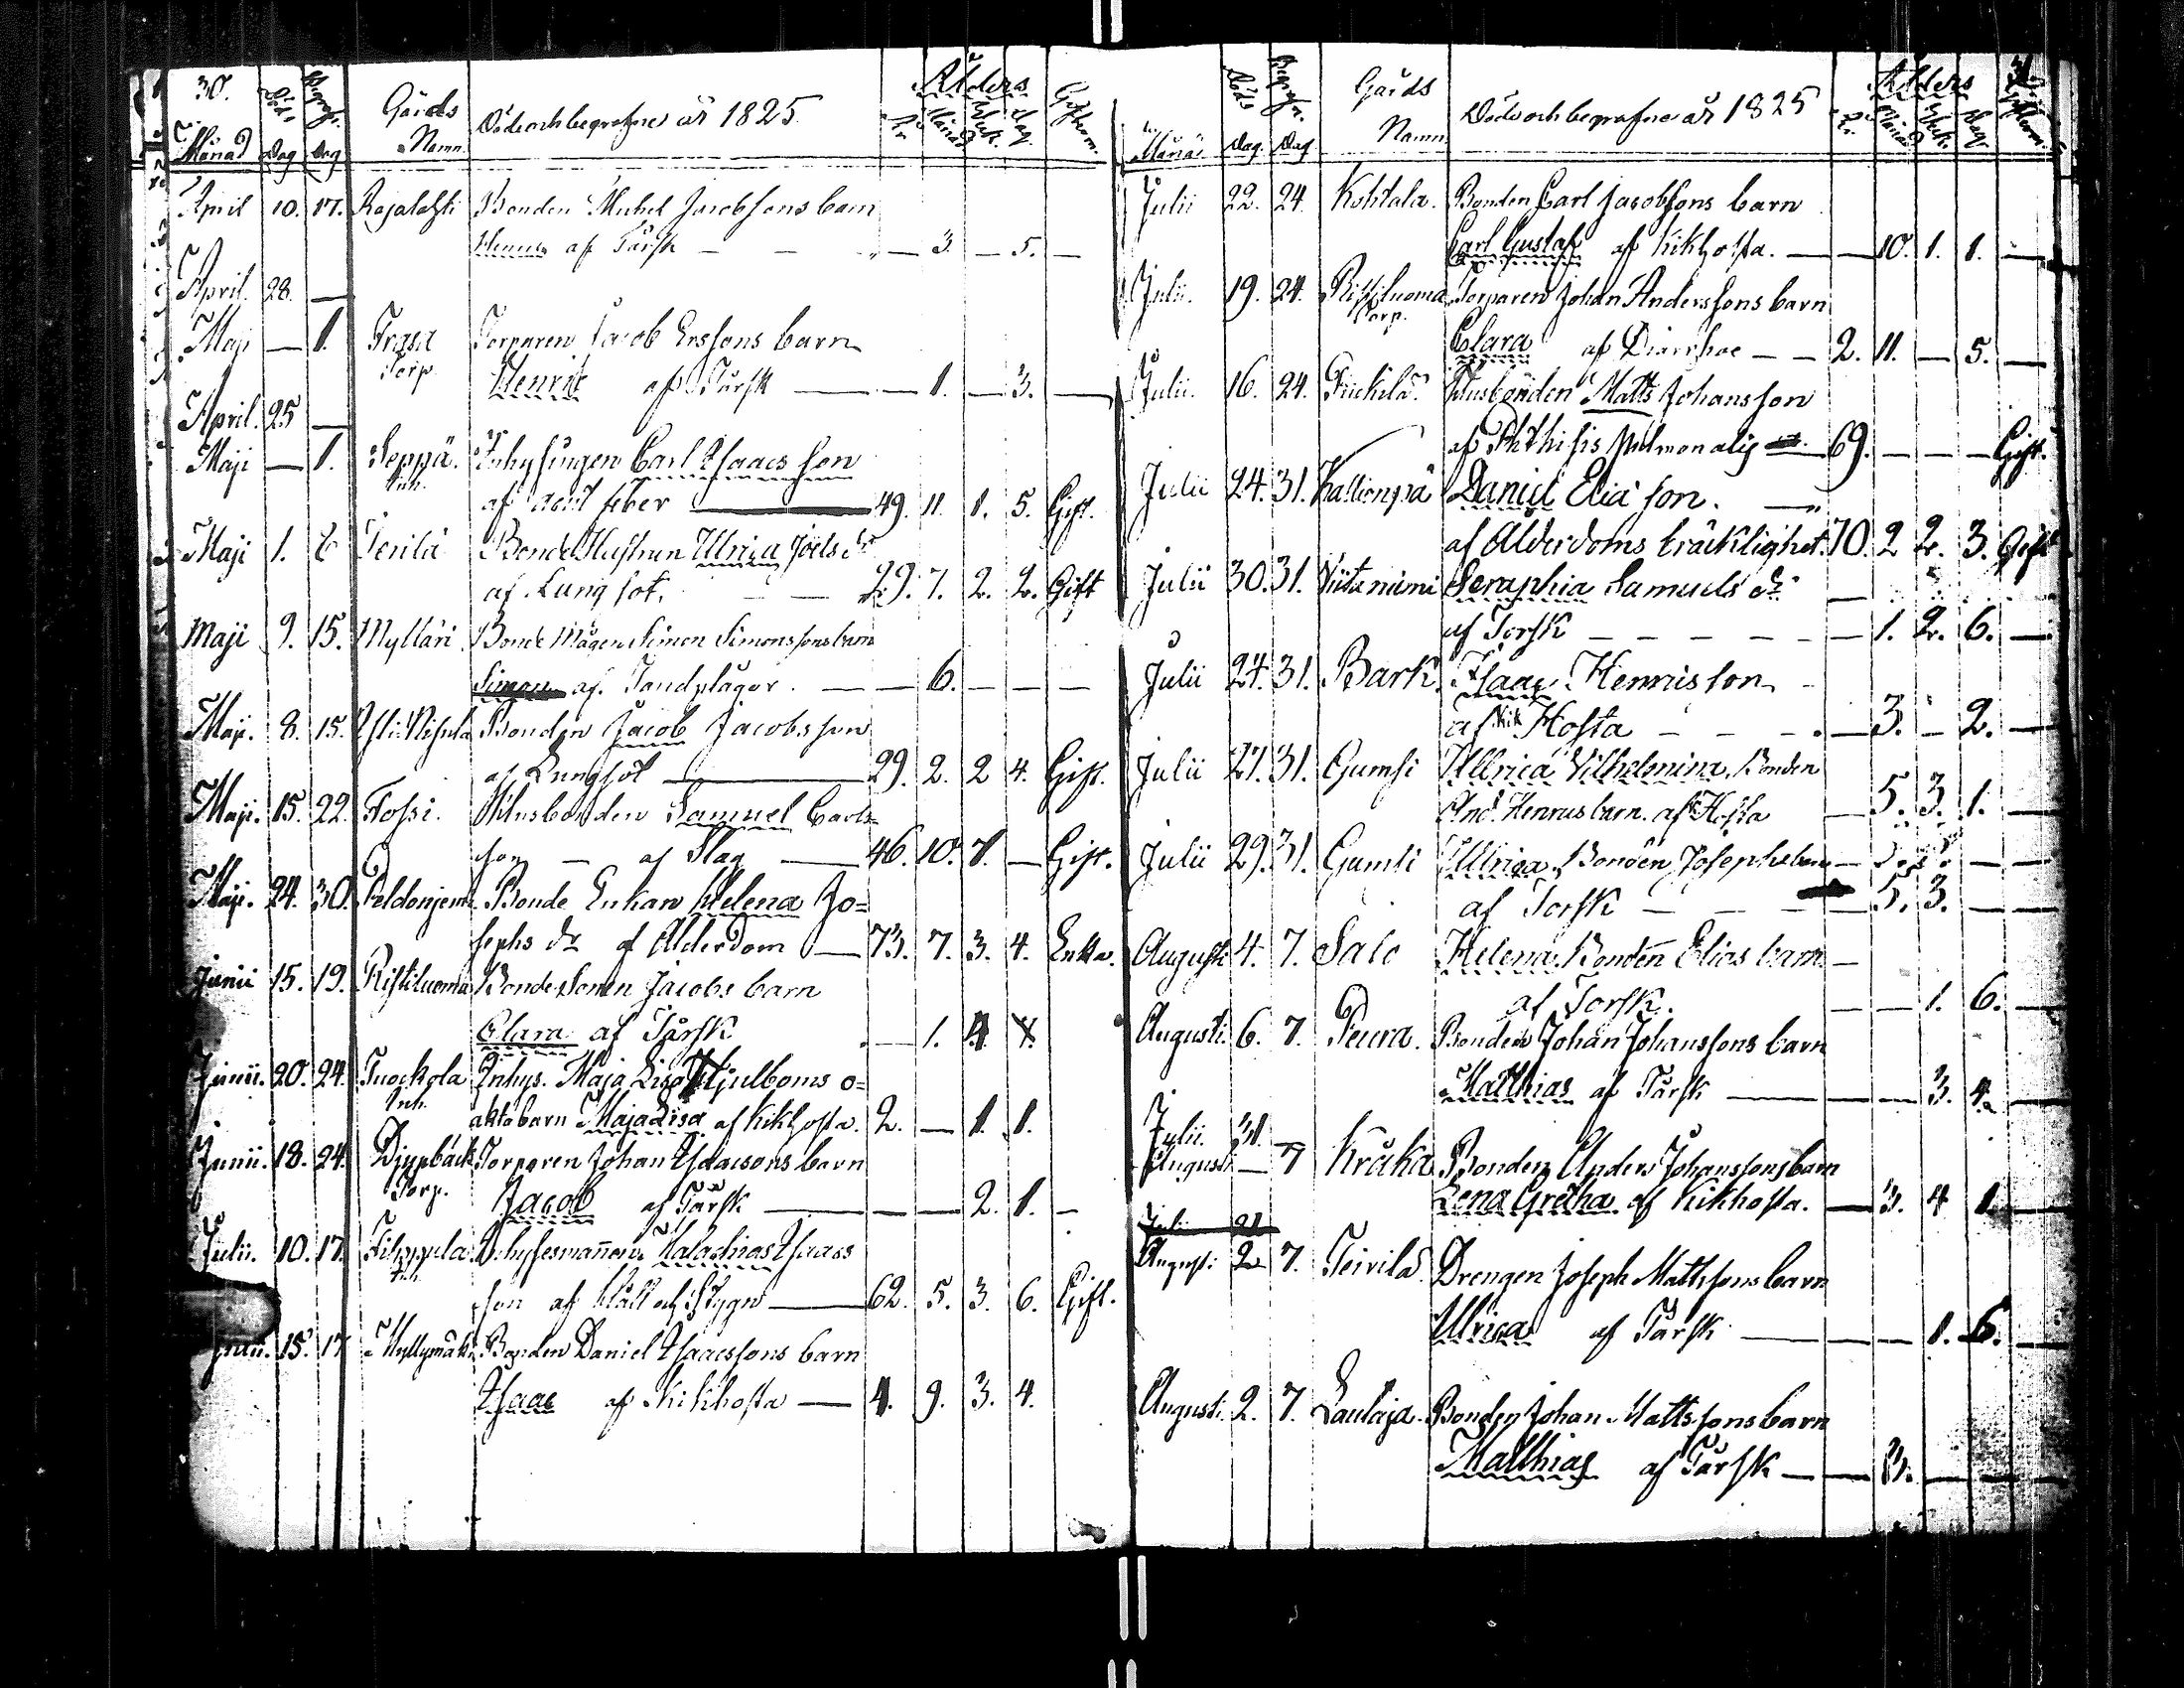 30. Död. Begrafn. Gårds Döde och begrafne år 1825. Ålders Giftorm.
Månad Dag Dag Namn. År Månad Veck. Dag
April 10. 17. Rajalaski Bonden Michel Jacobssons barn
Henric af Tårsk — — — 3. — 5. —
April. 28. —
Maji — 1. Frasa Torparen Jacob Erssons barn
Torp. Henric af Tårsk — — 1. — 3. —
April. 25 —
Maji — 1. Seppä. Inhysingen Carl Isaacs son
Inh. af acut feber — 49. 11. 1. 5. Gift.
Maji 1. 8 Terila Bonde Hustrun Ulrica Joels dr
af Lungsot. — — 29. 7. 2. 2. Gift
Maji 9. 15. Myllari Bonde Mågen Simon Simonssons barn
Simon af Tandplågor. — — 6. — — —
Maji. 8. 15. Bonden Jacob Jacobsson
af Lungsot — 29. 2. 2 4. Gift.
Maji. 15. 22. Fossi. Husbonden Samuel Carls-
son — af Slag — 46. 10. 1. — Gift.
Maji. 24. 30. Bonde Enkan Helena Jo=
sephs dr af Ålderdom — 73. 7. 3. 4. Enka.
Junii 15. 19. Ristiluoma Bonde Sonen Jacobs barn
Clara af Tårsk — 1. 4.
Junii. 20. 24. Tuockola Inhys. Maja Lisa Hjulboms o=
Inh. äkta barn Maja Lisa af Kikhosta. 2. — 1. 1.
Junii. 18. 24. Djupbäck Torparen Johan Isaacsons barn
Torp. Jacob af Tårsk — — — 2. 1. —
Julii. 10. 17. Filppula Inhysesmannen Malachias Isaacs
Inh. son af Håll och Stygn — 62. 5. 3. 6. Gift.
Julii. 15. 17 Myllymäki Bonden Daniel Isaacssons barn
Isaac af Kikhosta — 4. 9. 3. 4.
Döds Begrafn. Gårds Döde och begrafne år 1825 Ålders
Månad Dag. Dag Namn. År Månad Veck. Dag
Julii 22. 24. Kohtala. Bonden Carl Jacobssons barn
Carl Gustaf af Kikhosta. — — 10. 1. 1. —
Julii. 19. 24. Ristiluoma Torparen Johan Anderssons barn
Torp. Clara af Diarrhoe — — 2. 11. — 5. —
Julii. 16. 24. Husbonden Matts Johansson
af Phthisis Pulmonalis 69. — — — Gift.
Julii 24. 31. Kallionpä Daniel Elia son. —
af Ålderdoms bräcklighet. 70. 2 2. 3. Gift
Julii 30. 31. Viitaniemi Seraphia Samuels dr. —
af Torsk — — — — — 1. 2. 6. —
Julii 24. 31. Bark. Isaac Henrisson
af Kik Hosta — — — 3. — 2. —
Julii 27. 31. Gumsi Ullrica Vilhelmina. Bonden
And. Henrics barn. af Hosta — 5. 3. 1. —
Julii 29. 31. Gumsi Ullrica, Bonden Josephs barn — —
af Torsk — — — 5. 3. — —
Augusti 4. 7. Salo Helena. Bonden Elias barn —
af Torsk. — — 1. 6. —
Augusti. 6. 7. Peura. Bonden Johan Johanssons barn
Matthias af Tårsk — — — 3. 4. —
Julii. 31. —
Augusti — 7 Kråka Bonden Anders Johanssons barn
Lena Gretha af Kikhosta. — 3. 4 1.
Julii 21
Augusti 2 7. Teirilä Drengen Joseph Mattssons barn
Ulrica af Tårsk — — — 1. 6. —
Augusti. 2. 7. Laulaja. Bonden Johan Mattssons barn
Matthias af Tårsk — — 3. — — —